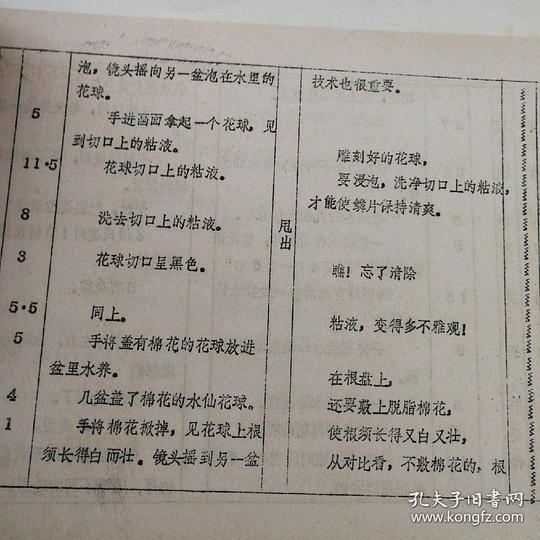 泡，镜头摇向另一盆泡在水里的
花球。
5 手进画面拿起一个花球，见
到切口上的粘液。
11·5 花球切口上的粘液。
8 洗去切口上的粘液。
3 花球切口呈黑色。
5·5 同上。
5 手将盖有棉花的花球放进
盆里水养。
4 几盆盖了棉花的水仙花球。
1 手将棉花掀掉，见花球上根
须长得白而壮。镜头摇到另一盆
甩出
技术也很重要。
雕刻好的花球，
要浸泡，洗净切口上的粘液，
才能使鳞片保持清爽。
瞧！忘了清除
粘液，变得多不雅观！
在根盘上，
还要敷上脱脂棉花，
使根须长得又白又壮，
从对比看，不敷棉花的，根
孔夫子旧书网
www.kongfz.com